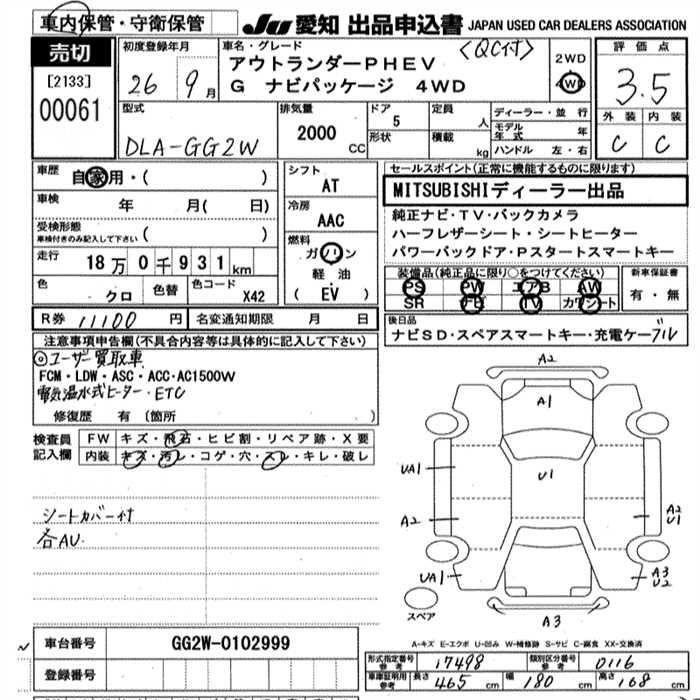 車内保管・守衛保管
JU 愛知 出品申込書 JAPAN USED CAR DEALERS ASSOCIATION
売切
[2133]
00061
初度登録年月
26 9月
車名・グレード
〈QC付〉
アウトランダーPHEV
G ナビパッケージ 4WD
2WD
4WD
評価点
3.5
外装 内装
C C
型式
DLA-GG2W
排気量
2000 CC
ドア 5
形状
定員 人
積載 kg
ディーラー・並行
モデル年式 年
ハンドル 左・右
車歴 自家用・( )
車検 年 月( 日)
受検形態
車検付きのみ記入して下さい ( )
走行 18万0千931km
色 クロ 色替 色コード X42
シフト
AT
冷房
AAC
燃料
ガソリン
軽油
( EV )
セールスポイント(正常に機能するものに限ります)
MITSUBISHIディーラー出品
純正ナビ・TV・バックカメラ
ハーフレザーシート・シートヒーター
パワーバックドア・Pスタートスマートキー
装備品(純正品に限り○をつけてください)
PS PW エアB AW
SR ナビ TV カワシート
新車保証書
有・無
R券 11100 円 名変通知期限 月 日
後日品
ナビSD・スペアスマートキー・充電ケーブル
注意事項申告欄(不具合内容等は具体的に記入して下さい)
◎ユーザー買取車
FCM・LDW・ASC・ACC・AC1500W
電気温水式ヒーター・ETC
修復歴 有 (箇所
検査員記入欄
FW キズ・飛石・ヒビ割・リペア跡・X要
内装 キズ・汚レ・コゲ・穴・スレ・キレ・破レ
シートカバー付
各AU.
A2
A1
U1
UA1
A2
UA1
A2
U1
A3
U2
A3
スペア
車台番号 GG2W-0102999
登録番号
A-キズ E-エクボ U-凹み W-補修跡 S-サビ C-腐食 XX-交換済
形式指定番号 参考 17498 類別区分番号 参考 0116
車庫証明用 参考 長さ 465 cm 幅 180 cm 高さ 168 cm